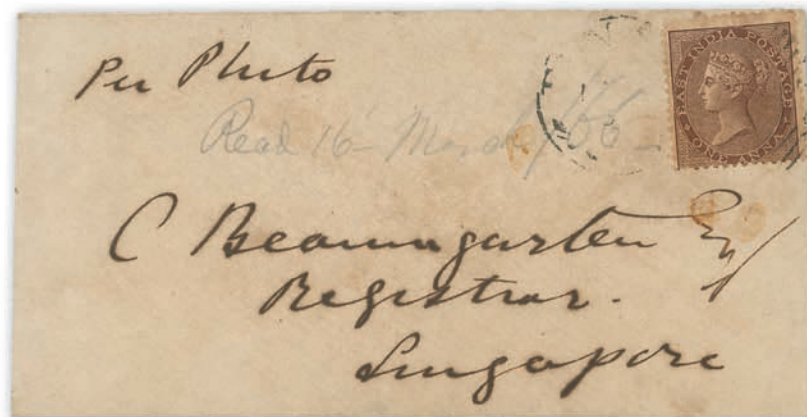 Per Pluto
Recd 16 March /66
EAST INDIA POSTAGE
ONE ANNA
C Beaumgarten Esq/
Registrar.
Singapore